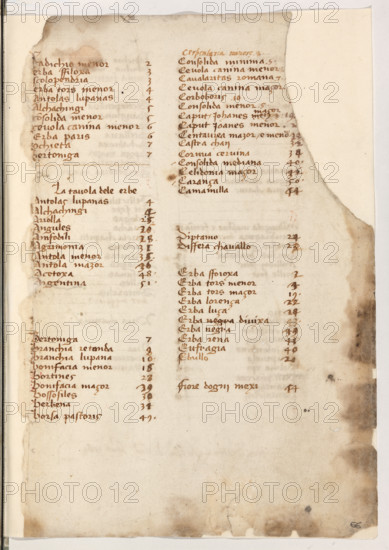 Radichio menor 2
Erba ssiloxa 3
Scolopondria 3
Erba tors menor 4
Antolas lupanas 4
Alchachingi 5
Consolida menor 5
Ceriola canina menor 6
Erba paris 6
7
Bertoniga 7
La tavola dele erbe
Antolas lupanas 4
Alchachingi
Ariolla 25
Angules 20
Ansodili 28
Agrimonia 31
Antola menor 35
Antola mazor 46
Acetoxa 48
Argentina 51
Bertoniga 7
Brancha retonda 9
Brancha lupana 10
Bonifacia menor 18
Bortines 22
Bonifacia mazor 29
Bossofiles 30
Berbena 34
Borsa pastoris 49
Consolida minima
Ceriola canina menor
Cavalaritas romana
Ceriola canina mazor
Corboboris
Consolida menor
Caput Johanes mazor
Caput Joanes menor
Centauriga mazor e meno 12
Castra chan 13
Cornua cervina 14
Consolida mediana 40
Celidonia mazor
Caranza 50
Camamilla 54
Diptamo 24
Differa chavallo 25
Erba ssiloxa 2
Erba tors menor
Erba tors mazor
Erba lorenza 22
Erba luza 28
Erba negra divixa
Erba negra
Erba rena 44
Eufragia 40
Ebullo 20
fiore dogni mexi 54
66
PHOTO 12